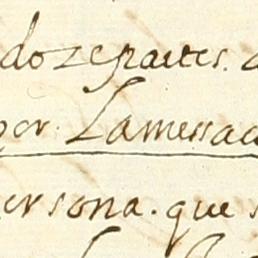 doze partes.
per Lamessa
persona. que s